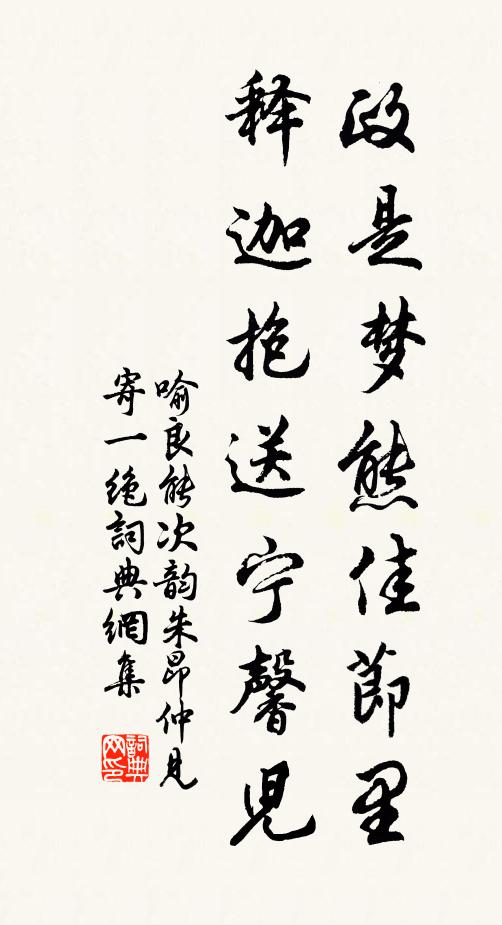 政是梦熊佳節里
释迦抱送宁馨児
喻良能次韵朱昂仲見
寄一绝詞典網集
詞典
网印